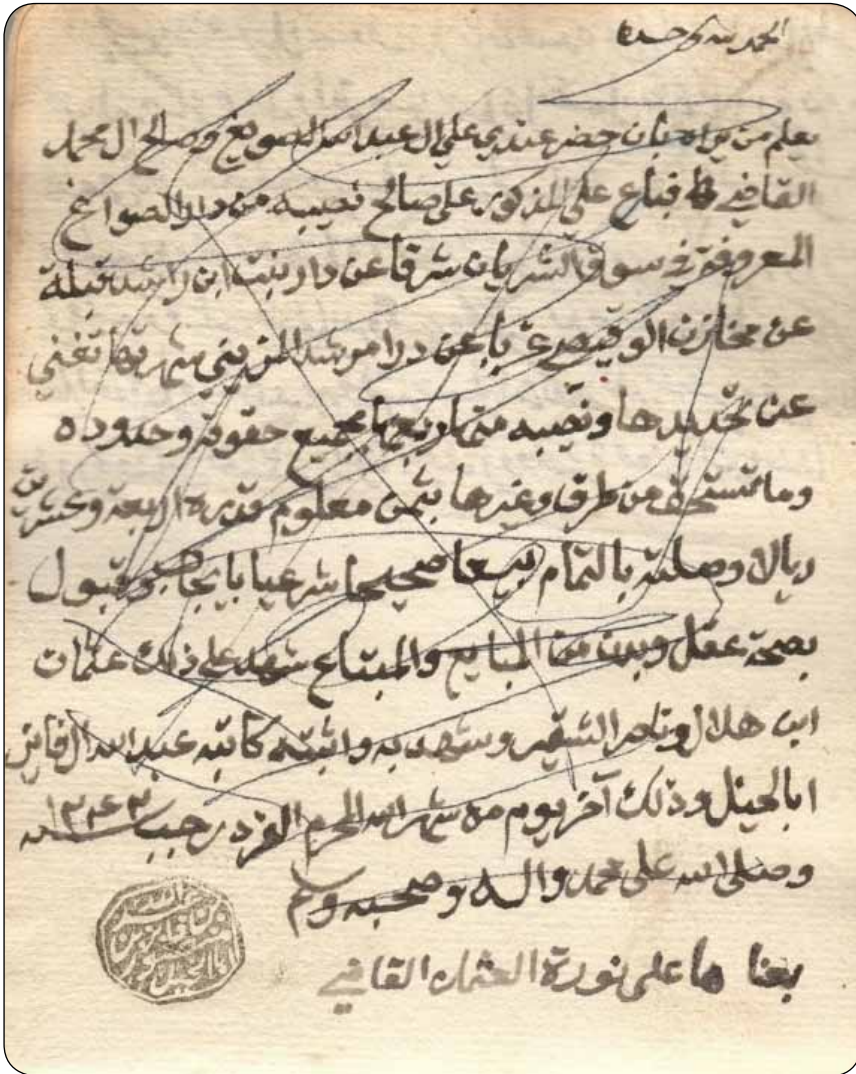 الحمد لله وحده
يعلم من يراه بان حضر عندي علي ال عبدالله الصويغ وصالح ال محمد
القاضي فباع علي المذكور على صالح نصيبه من دار الصوايغ
المعروفة في سوق شرقا عن دار بنت ابن راشد قبلة
عن مخازن غربا عن دار مرشد شهرتها تغني
عن تحديدها ونصيبه منها ربعها بجميع حقوقه وحدوده
وما تستحق من طرق وغيرها بثمن معلوم قدره اربعة وعشرين
ريالا وصلته بالتمام بيعا صحيحا شرعيا بايجاب وقبول
بصحة عقل وبدن من البايع والمبتاع شهد على ذلك عثمان
ابن هلال وناصر الشقير وشهد به واثبته كاتبه عبدالله ال فايز
ابالخيل وذلك آخر يوم من شهر الله المحرم الفرد رجب ١٣٤٣ سنه
وصلى الله على محمد واله وصحبه وسلم
بعنا ها على نورة العثمان القاضي